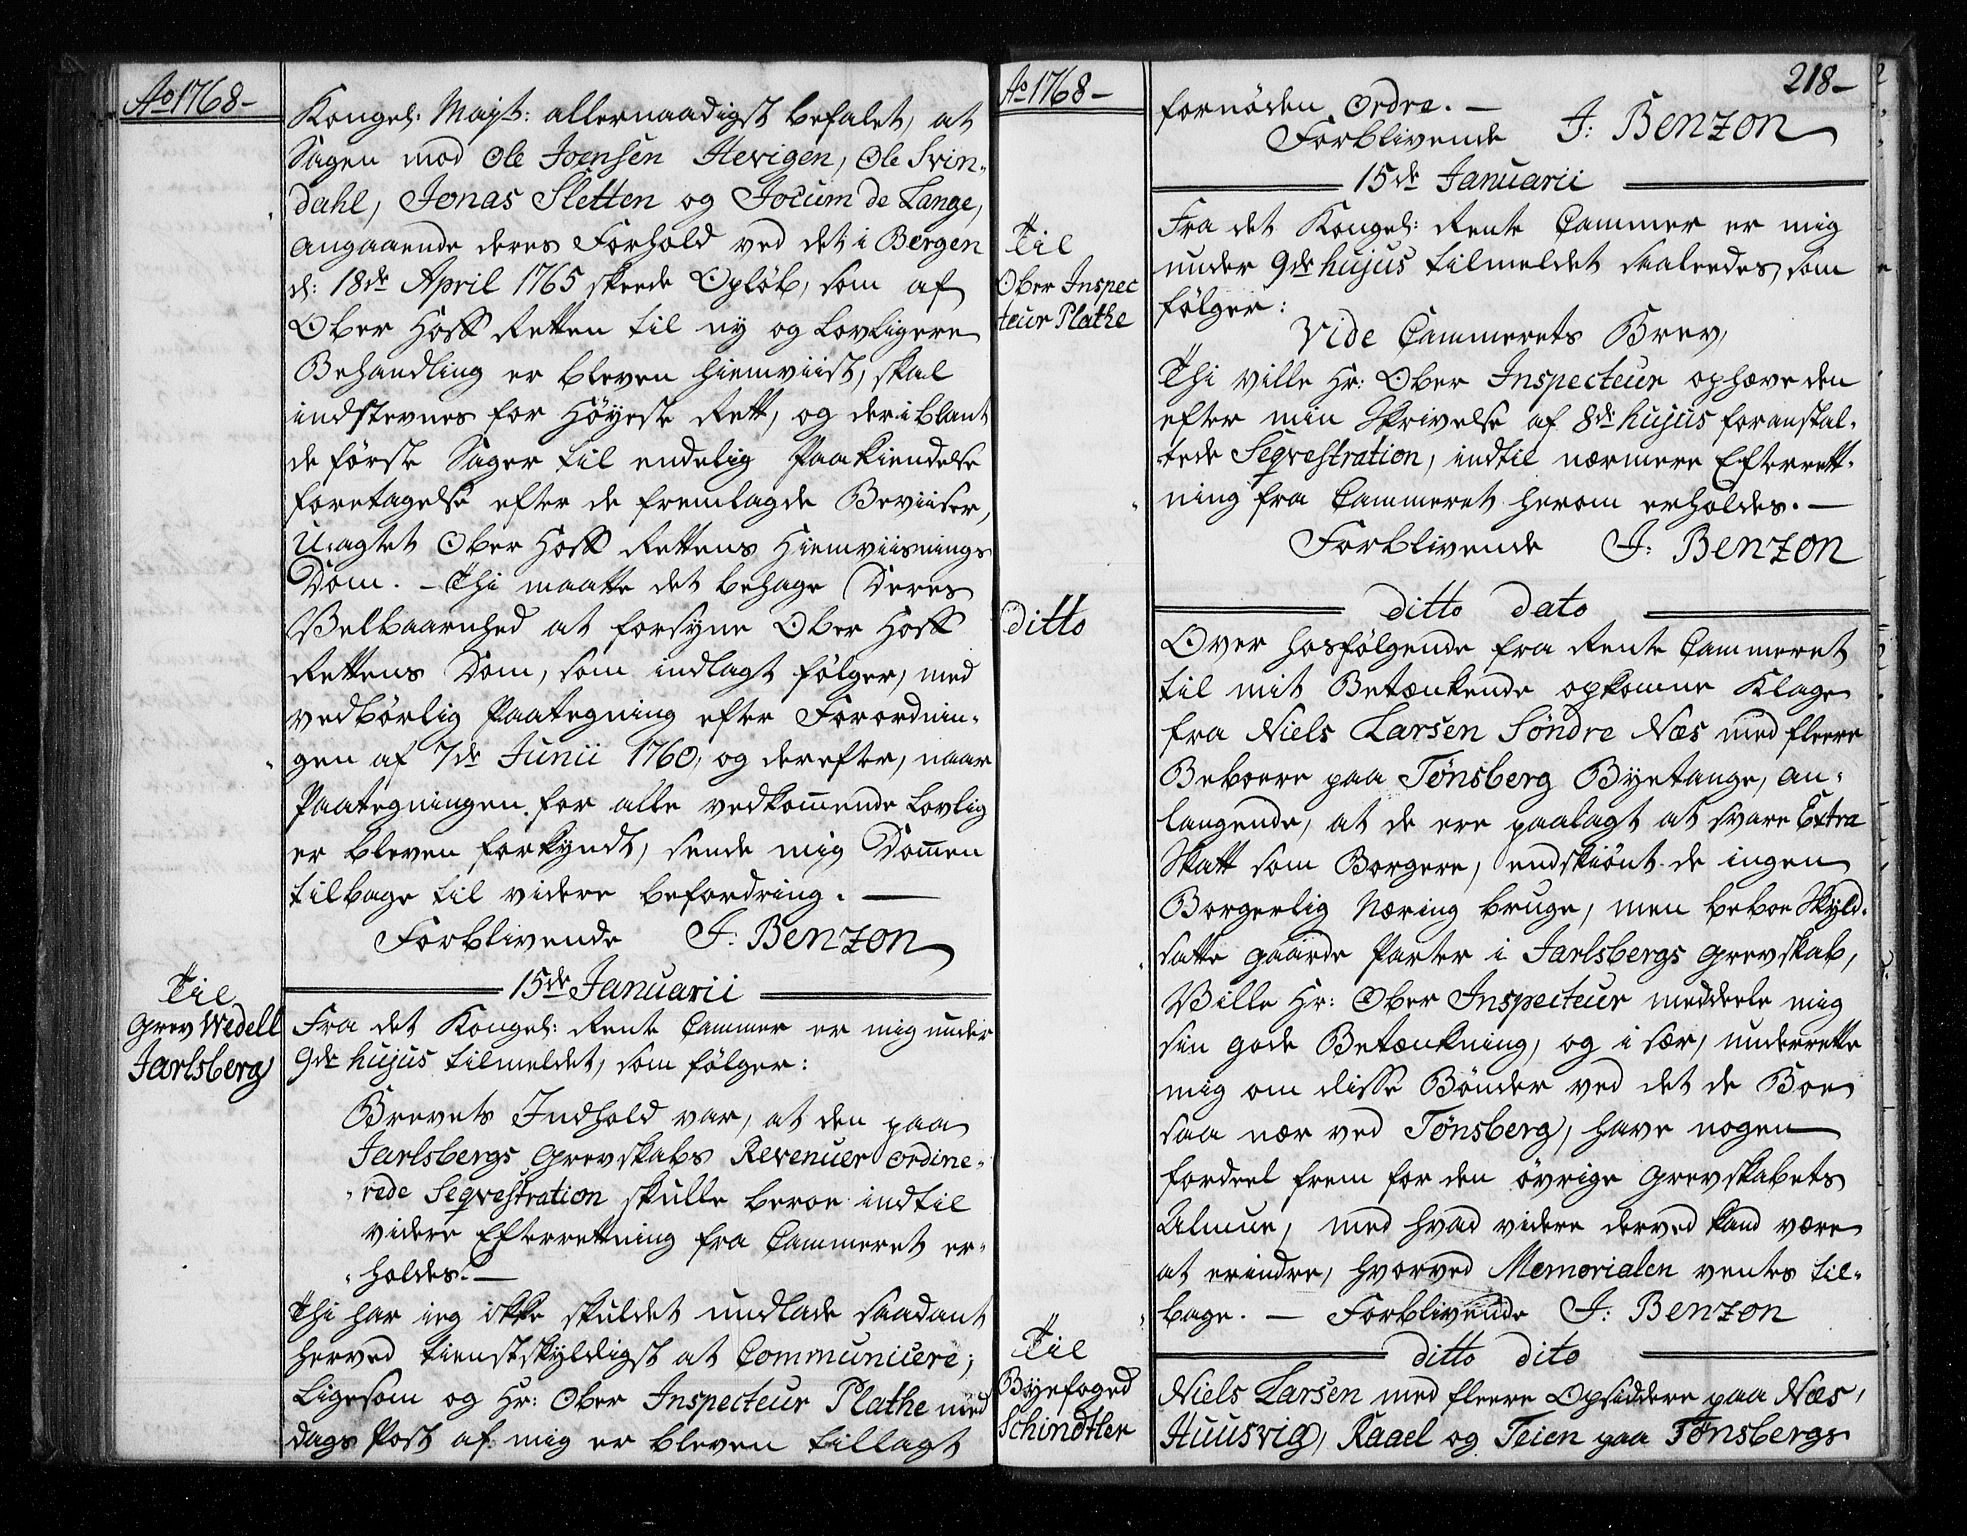 Ao 1768-
Kongel: Mayst: allernaadigst befalet, at
Sagen mod Ole Joensen Hevigen, Ole Svin-
dahl, Jonas Sletten og Jocum de Lange,
angaaende deres Forhold ved det i Bergen
d: 18de April 1765 skeede Opløb, som af
Ober Hoff Retten til ny og Lovligere
Behandling er bleven hiemviist, skal
indstevnes for Høyeste Rett, og der i blant
de første Sager til endelig Paakiendelse
foretagelse efter de fremlagde Beviiser,
Uagtet Ober Hoff Rettens Hiemviisnings
Dom. - Thi maatte det behage Deres
Velbaarenhed at forsyne Ober Hoff
Rettens Dom, som indlagt følger, med
vedbørlig Paategning efter Forordnin-
gen af 7de Junii 1760, og derefter, naar
Paategningen for alle vedkom̄ende Lovlig
er bleven forkyndt, sende mig Dom̄en
tilbage til videre befordring. —
Forblivende J: Benzon
15de Januarii
Til
Grev Wedell
Jarlsberg
Fra det Kongel: Rente Cammer er mig under
9de hujus tilmeldet, som følger:
Brevets Indhold var, at den paa
Jarlsbergs Grevskabs Revenuer ordine-
rede Seqvestration skulle beroe indtil
videre Efterretning fra Cammeret er-
holdes. —
Thi har ieg ikke skuldet undlade saadant
herved tienstskyldigst at Communicere;
Ligesom og Hr: Ober Inspecteur Plathe med
dags Post af mig er bleven tillagt
Ao 1768-
218-
fornøden Ordre. —
Forblivende J: Benzon
15de Januarii
Til
Ober Inspec
teur Plathe
Fra det Kongel: Rente Cammer er mig
under 9de hujus tilmeldet saaleedes, som
følger:
Vide Cammerets Brev,
Thi ville Hr: Ober Inspecteur ophæve den
efter min Skrivelse af 8de hujus foranstal-
tede Seqvestration, indtil nærmere Efterrett-
ning fra Cammeret herom erholdes. —
Forblivende J: Benzon
ditto dato
ditto
Over hosfølgende fra Rente Cammeret
til mit Betænkende opkomne Klage
fra Niels Larsen Søndre Næs med fleere
Beboere paa Tønsberg Byetange, an-
langende, at de ere paalagt at svare Extra
Skatt som Borgere, endskiønt de ingen
Borgerlig Næring bruge, men beboe Skyld-
satte gaarde Parter i Jarlsbergs Grevskab,
Ville Hr: Ober Inspecteur meddeele mig
sin gode Betænkning, og i sær, underrette
mig om disse Bønder ved det de Boe
saa nær ved Tønsberg, have nogen
fordeel frem for den øvrige Grevskabets
Almue, med hvad videre derved kand være
at erindre, hvorved Memorialen ventes til-
bage. — Forblivende J: Benzon
ditto dito
Til
Byefoged
Schindtler
Niels Larsen med fleere Opsiddere paa Næs,
Huusvig, Raael og Teien paa Tønsbergs